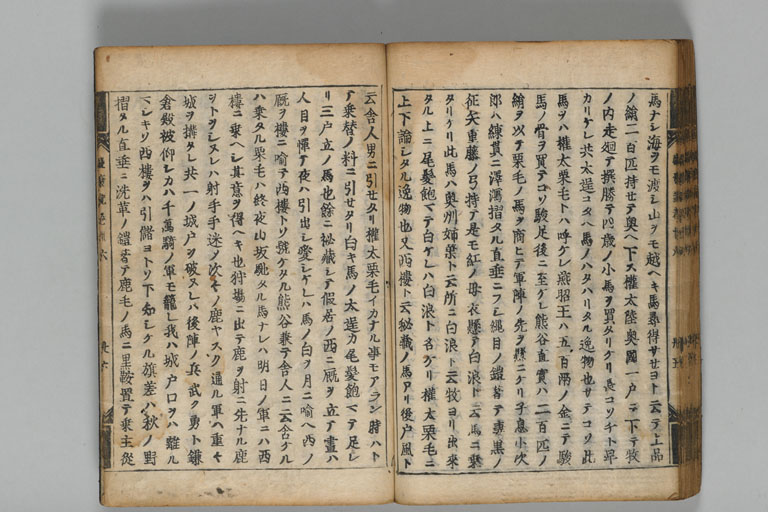 馬ナシ海ヲモ渡シ山ヲモ越ヘキ馬尋得サセヨト云テ上品
ノ絹二百匹持セテ奥ヘ下ス權太陸奥國一戸ニ下テ牧
ノ内走廻テ撰勝テ四歳ノ小馬ヲ買タリケリ長コソチト卑
カリケレ共太逞コタヘ馬ノハタハリタル逸物也サテコソ此
馬ヲハ權太栗毛トハ呼ケレ燕昭王ハ五百兩ノ金ニテ駿
馬ノ骨ヲ買テコソ駿足後ニ至ケレ熊谷直實ハ二百匹ノ
絹ヲ以テ栗毛ノ馬ヲ商ヒテ軍陣ノ先ヲ懸ニケリ子息小次
郎ハ練貫ニ澤瀉摺タル直垂ニフシ繩目ノ鎧著テ妻黒ノ
征矢重藤ノ弓持テ是モ紅ノ母衣懸テ白浪ト云馬ニ乗
タリケリ此馬ハ奥州姉葉ト云所ニ白浪ト云牧ヨリ出來
タル上ニ尾髮飽マテ白ケレハ白浪ト名ケリ權太栗毛ニ
上下論シタル逸物也又西樓ト云祕藏ノ馬アリ後戸風ト
云舎人男ニ引セタリ權太栗毛イカナル事モアラン時ハト
テ乗替ノ料ニ引セタリ白キ馬ノ太逞カ尾髮飽マテ足レ
リ三戸立ノ馬也餘ニ祕藏シテ假居ノ西ニ厩ヲ立テ晝ハ
人目ヲ憚テ夜ハ引出シ愛シケレハ馬ノ白ヲ月ニ喩ヘ西ノ
厩ヲ樓ニ喩テ西樓トソ號ケタル熊谷兼テ舎人ニ云含ケル
ハ乗タル栗毛ハ終夜山坂馳タル馬ナレハ明日ノ軍ニハ西
樓ニ乗ヘシ其意ヲ得ヘキ也狩場ニ出テ鹿ヲ射ニ先ナル鹿
シトヽシヌレハ射手手迷ノ次キノ鹿ヤスク通ル軍ハ重キ
城ヲ構タレ共一ノ城戸ヲ破ヌレハ後陣ノ兵武ク勇ト鎌
倉殿被仰シカハ千萬騎ノ軍モ籠レ我ハ城戸口ヲハ離ル
マシキソ西樓ヲハ引儲ヨトソ下知シケル旗差ハ秋ノ野
摺タル直垂ニ洗革ノ鎧著テ鹿毛ノ馬ニ黒鞍置テ乗主從